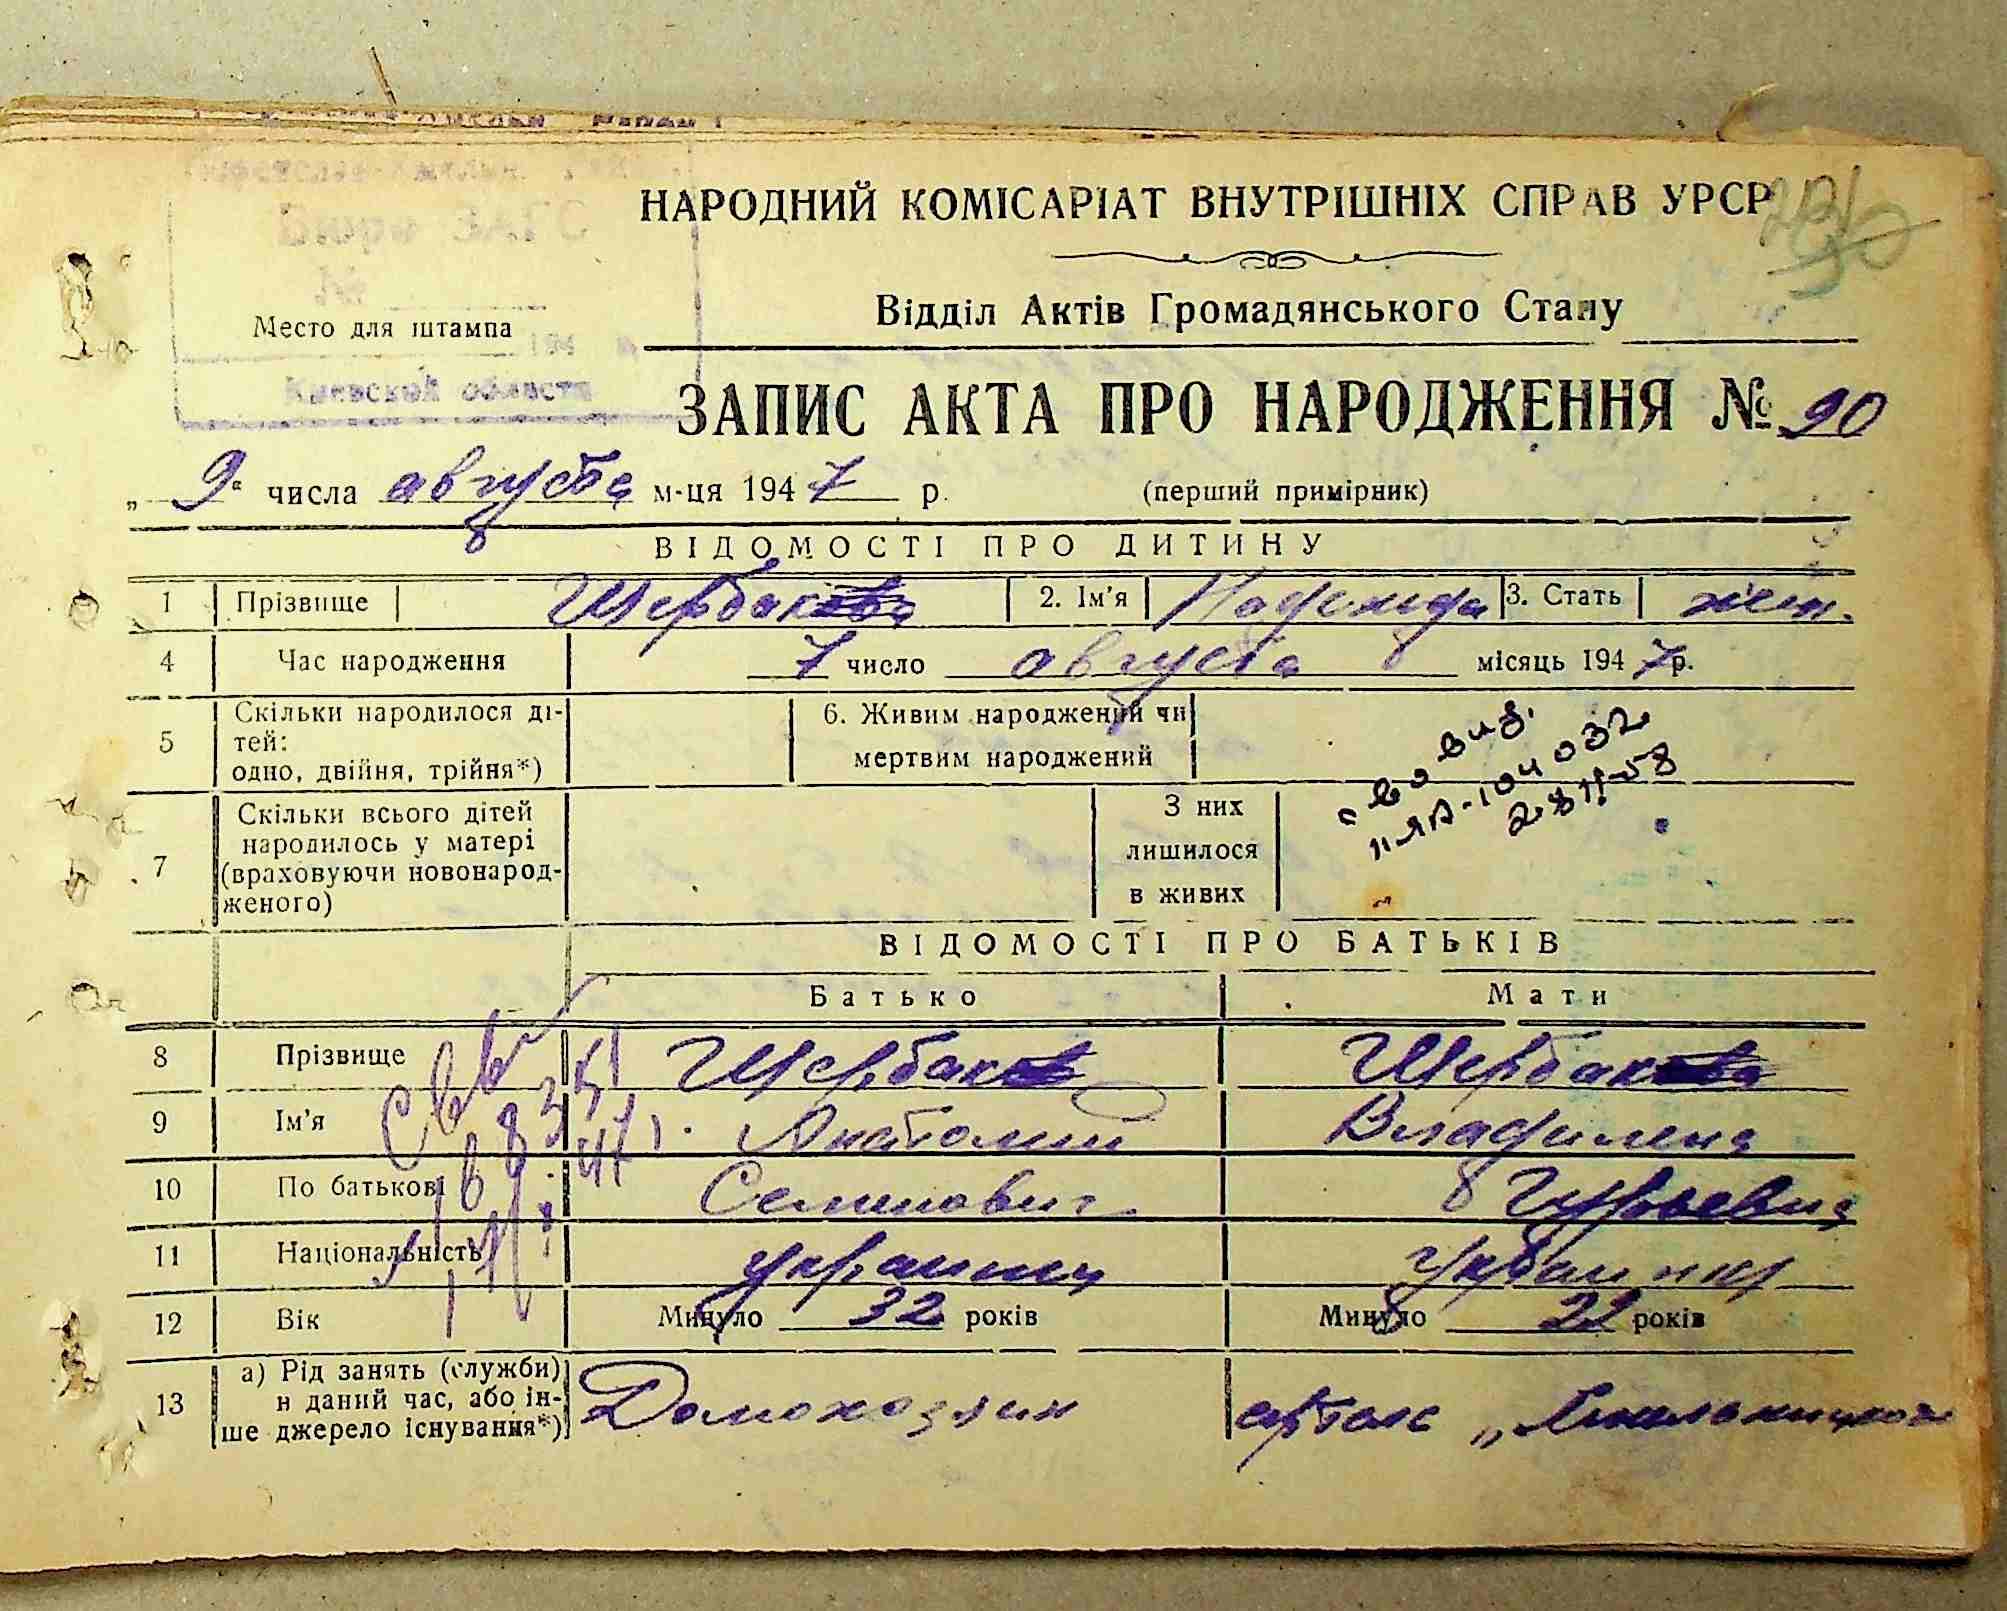 Бюро ЗАГС
№
194
Киевской области
Место для штампа
НАРОДНИЙ КОМІСАРІАТ ВНУТРІШНІХ СПРАВ УРСР
Відділ Актів Громадянського Стану
ЗАПИС АКТА ПРО НАРОДЖЕННЯ № 90
„ 9 “ числа августа м-ця 1947 р. (перший примірник)
ВІДОМОСТІ ПРО ДИТИНУ
1 Прізвище Щербак 2. Ім'я Надежда 3. Стать жен.
4 Час народження 7 число августа місяць 1947 р.
5 Скільки народилося ді-
тей:
одно, двійня, трійня*)
6. Живим народжений чи
мертвим народжений
7 Скільки всього дітей
народилось у матері
(враховуючи новонарод-
женого)
З них
лишилося
в живих
повид.
II ЯА-104032
ВІДОМОСТІ ПРО БАТЬКІВ
Батько Мати
8 Прізвище Щербак Щербак
9 Ім'я Анатолий Владилена
10 По батькові Семенович Гурьевна
11 Національність украинец Украинка
12 Вік Минуло 32 років Минуло 22 років
13 а) Рід занять (служби)
н даний час, або ін-
ше джерело існування*)
Домохозяин